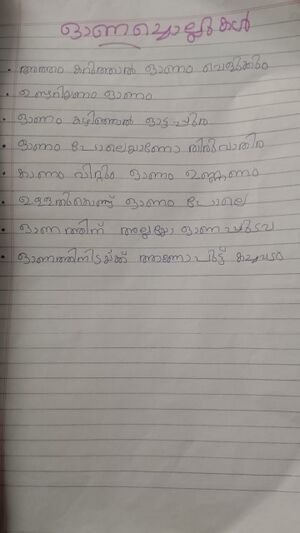 ഓണച്ചൊല്ലുകൾ
• അത്തം കറുത്താൽ ഓണം വെളുക്കും
• ഉണ്ടറിയണം ഓണം
• ഓണം കഴിഞ്ഞാൽ ഓട്ടപ്പുര
• ഓണം പോലെയാണോ തിരുവാതിര
• കാണം വിറ്റും ഓണം ഉണ്ണണം
• ഉള്ളതുകൊണ്ട് ഓണം പോലെ
• ഓണത്തിന് അല്ലയോ ഓണപ്പുടവ
• ഓണത്തിനിടയ്ക്ക് ആണോ പുട്ട് കച്ചവടം